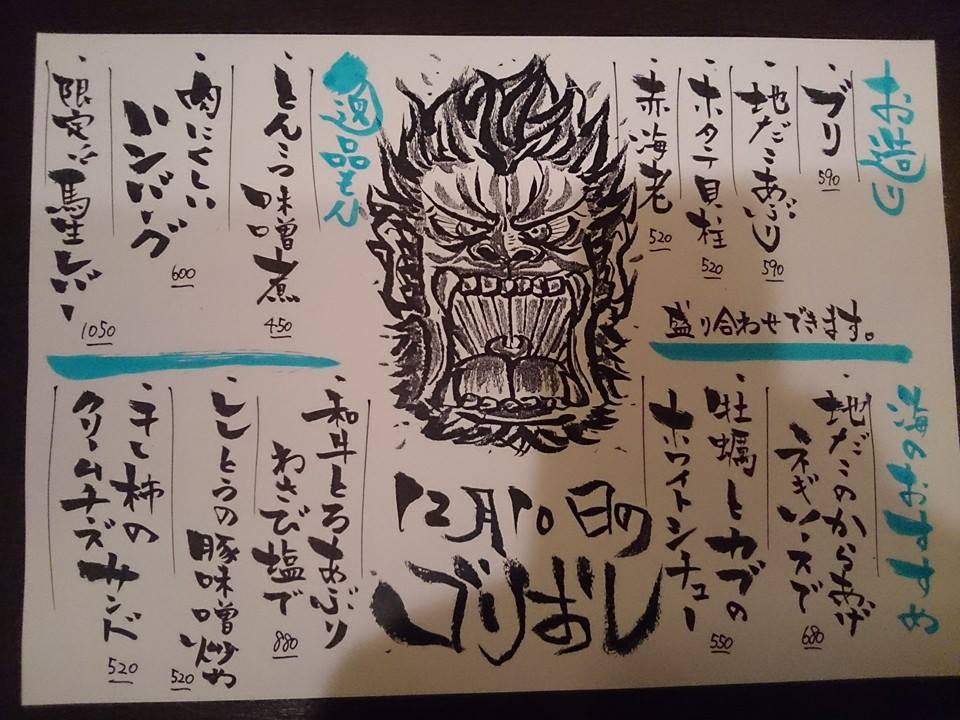 お造り
・ブリ
590
・地だこあぶり
590
・ホタテ貝柱
520
・赤海老
520
盛り合わせできます。
地だこのからあげ
ネギソースで
680
・牡蠣とカブの
ホワイトシチュー
550
12月10日の
ゴリおし
逸品もん
・とんこつ味噌煮
450
・肉にくしい
ハンバーグ
600
・限定!!馬生レバー
1050
・和牛とろあぶり
わさび塩で
880
・ししとうの
豚味噌炒め
520
・干し柿の
クリームチーズサンド
520